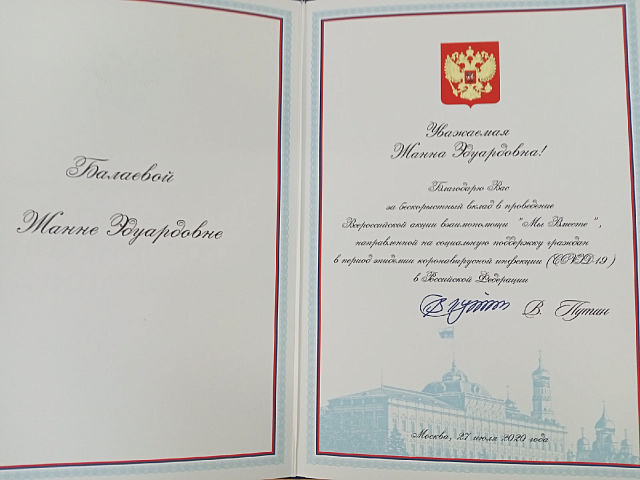 Балаевой
Жанне Эдуардовне
Уважаемая
Жанна Эдуардовна!
Благодарю Вас
за бескорыстный вклад в проведение
Всероссийской акции взаимопомощи "Мы Вместе",
направленной на социальную поддержку граждан
в период эпидемии коронавирусной инфекции (COVID-19)
в Российской Федерации
В. Путин
Москва, 27 июля 2020 года